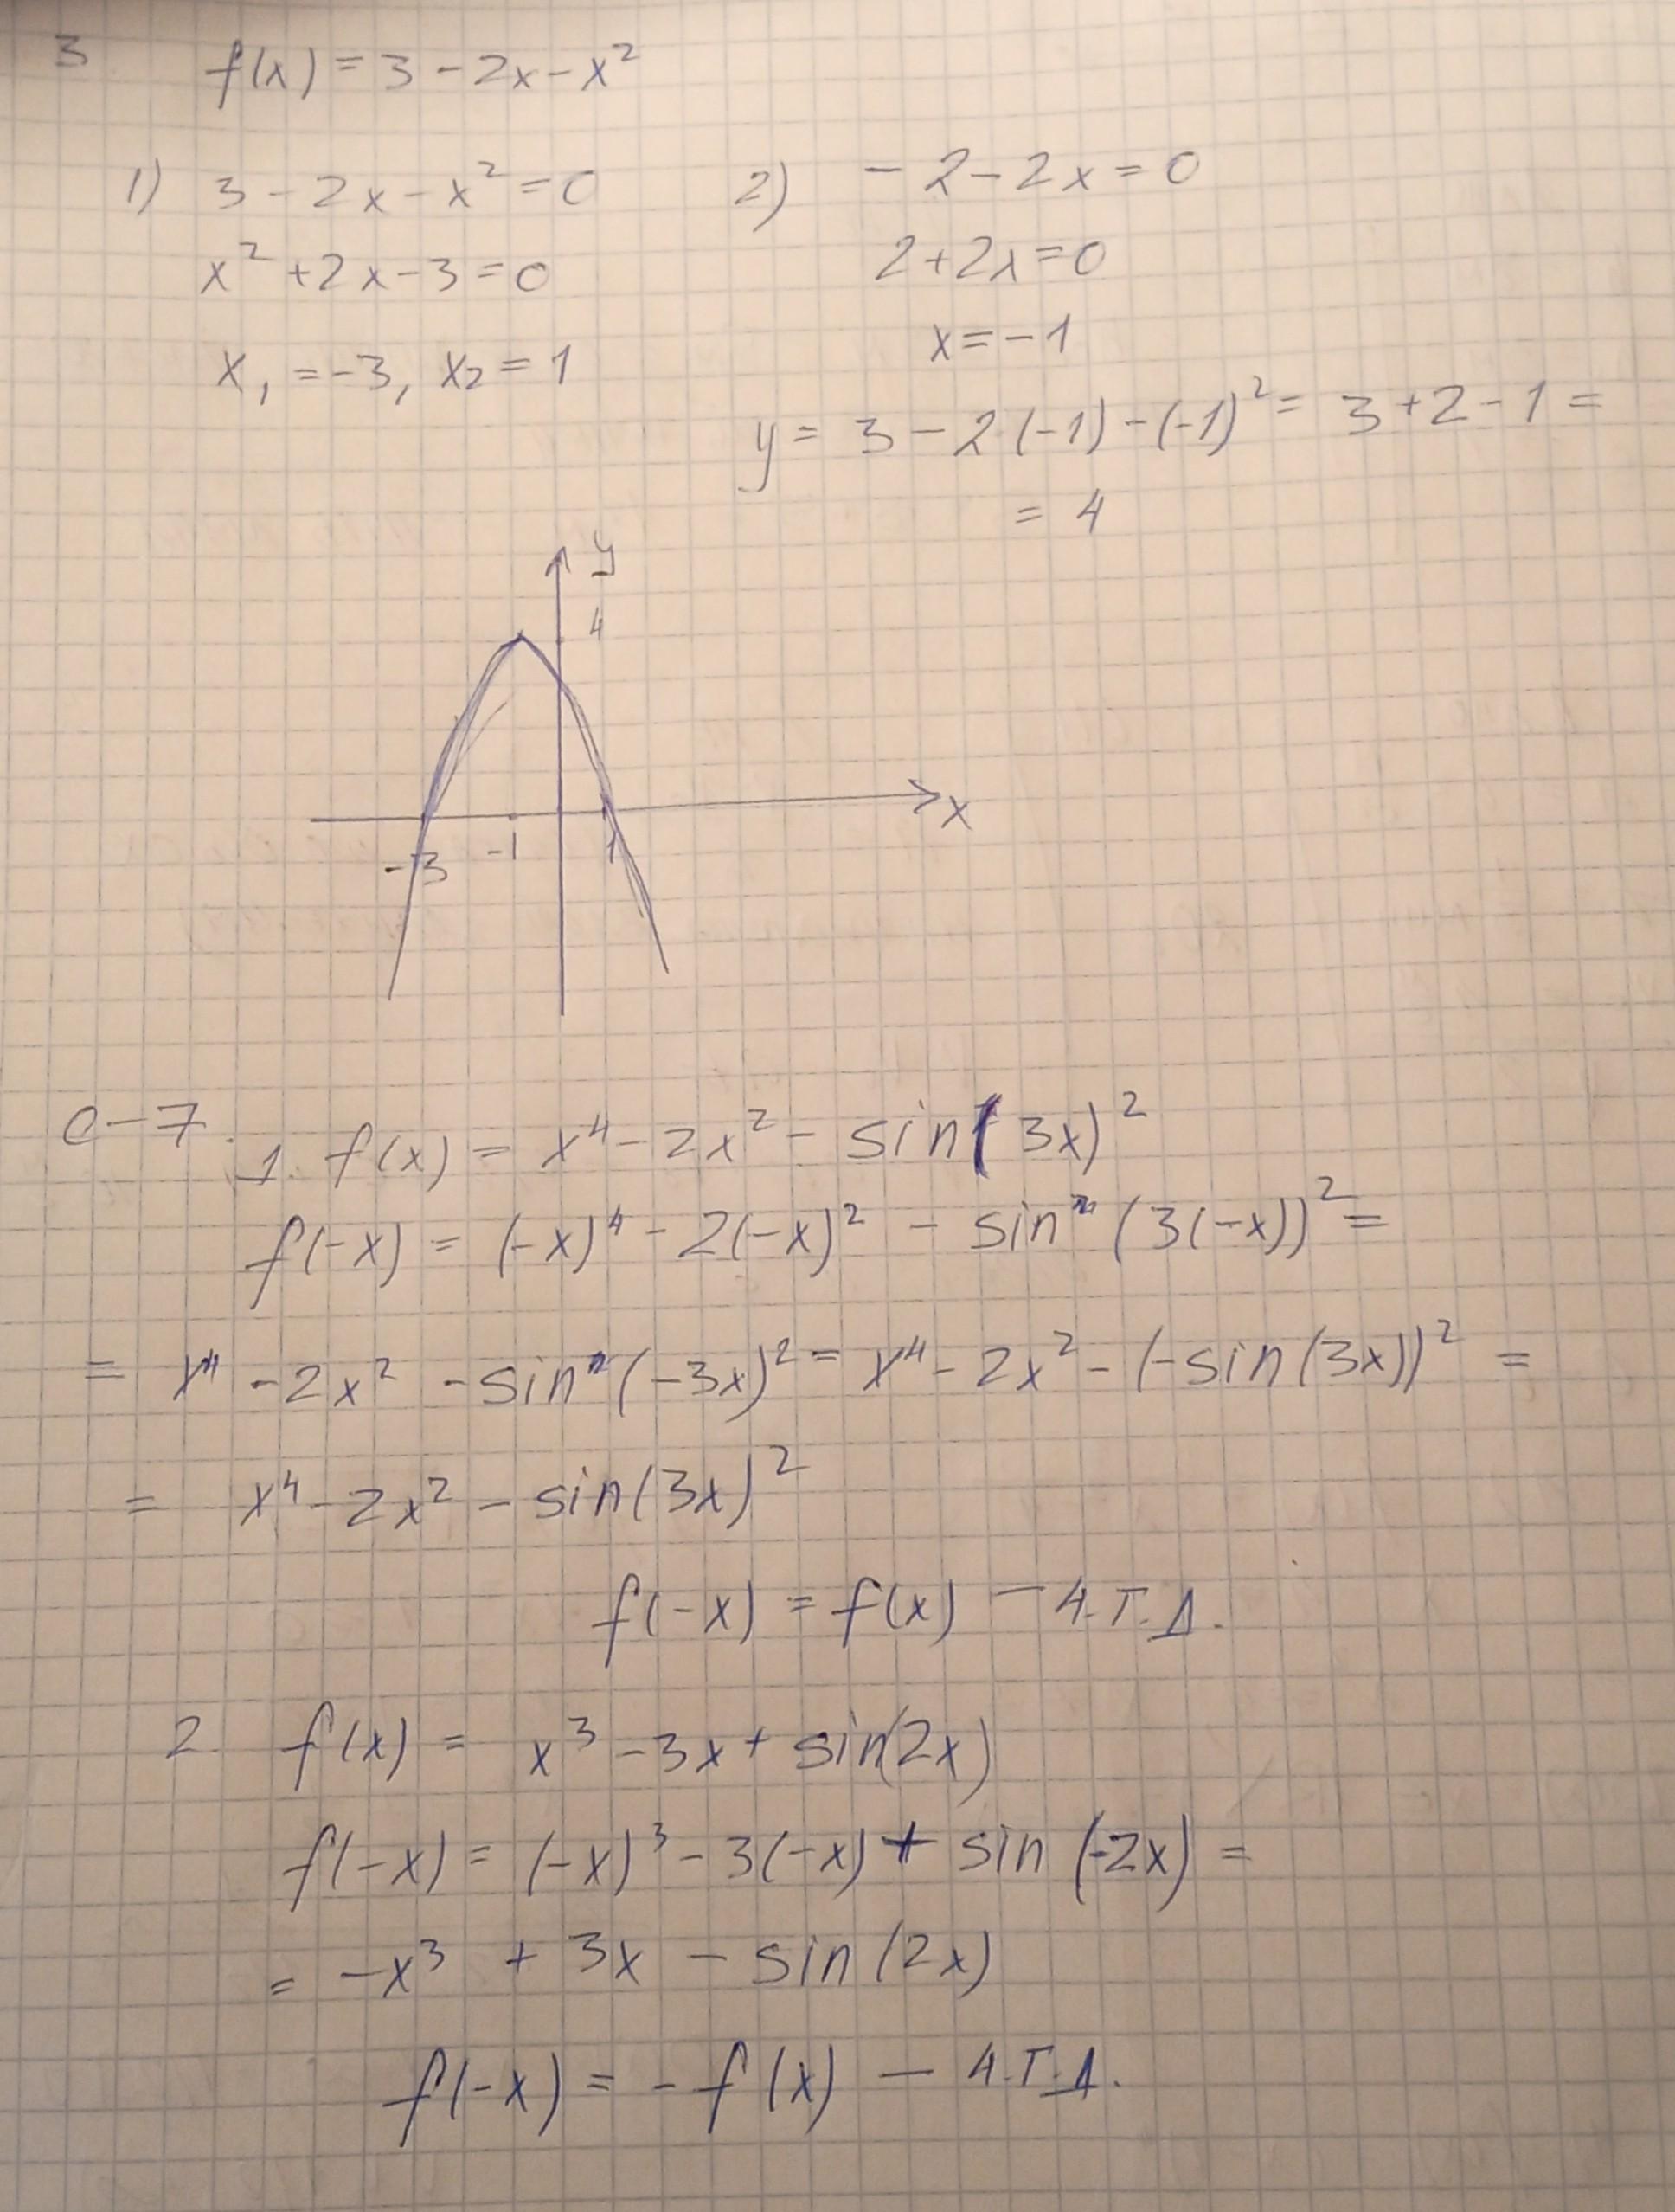 3 f(x) = 3 - 2x - x²
1) 3 - 2x - x² = 0
x² + 2x - 3 = 0
x₁ = -3, x₂ = 1
2) - 2 - 2x = 0
2 + 2x = 0
x = -1
y = 3 - 2(-1) - (-1)² = 3 + 2 - 1 =
= 4
y
4
x
-3 -1 1
С-7. 1. f(x) = x⁴ - 2x² - sin(3x)²
f(-x) = (-x)⁴ - 2(-x)² - sin (3(-x))² =
= x⁴ - 2x² - sin (-3x)² = x⁴ - 2x² - (-sin(3x))² =
= x⁴ - 2x² - sin(3x)²
f(-x) = f(x) — ч.т.д.
2 f(x) = x³ - 3x + sin(2x)
f(-x) = (-x)³ - 3(-x) + sin (-2x) =
= -x³ + 3x - sin(2x)
f(-x) = -f(x) — ч.т.д.